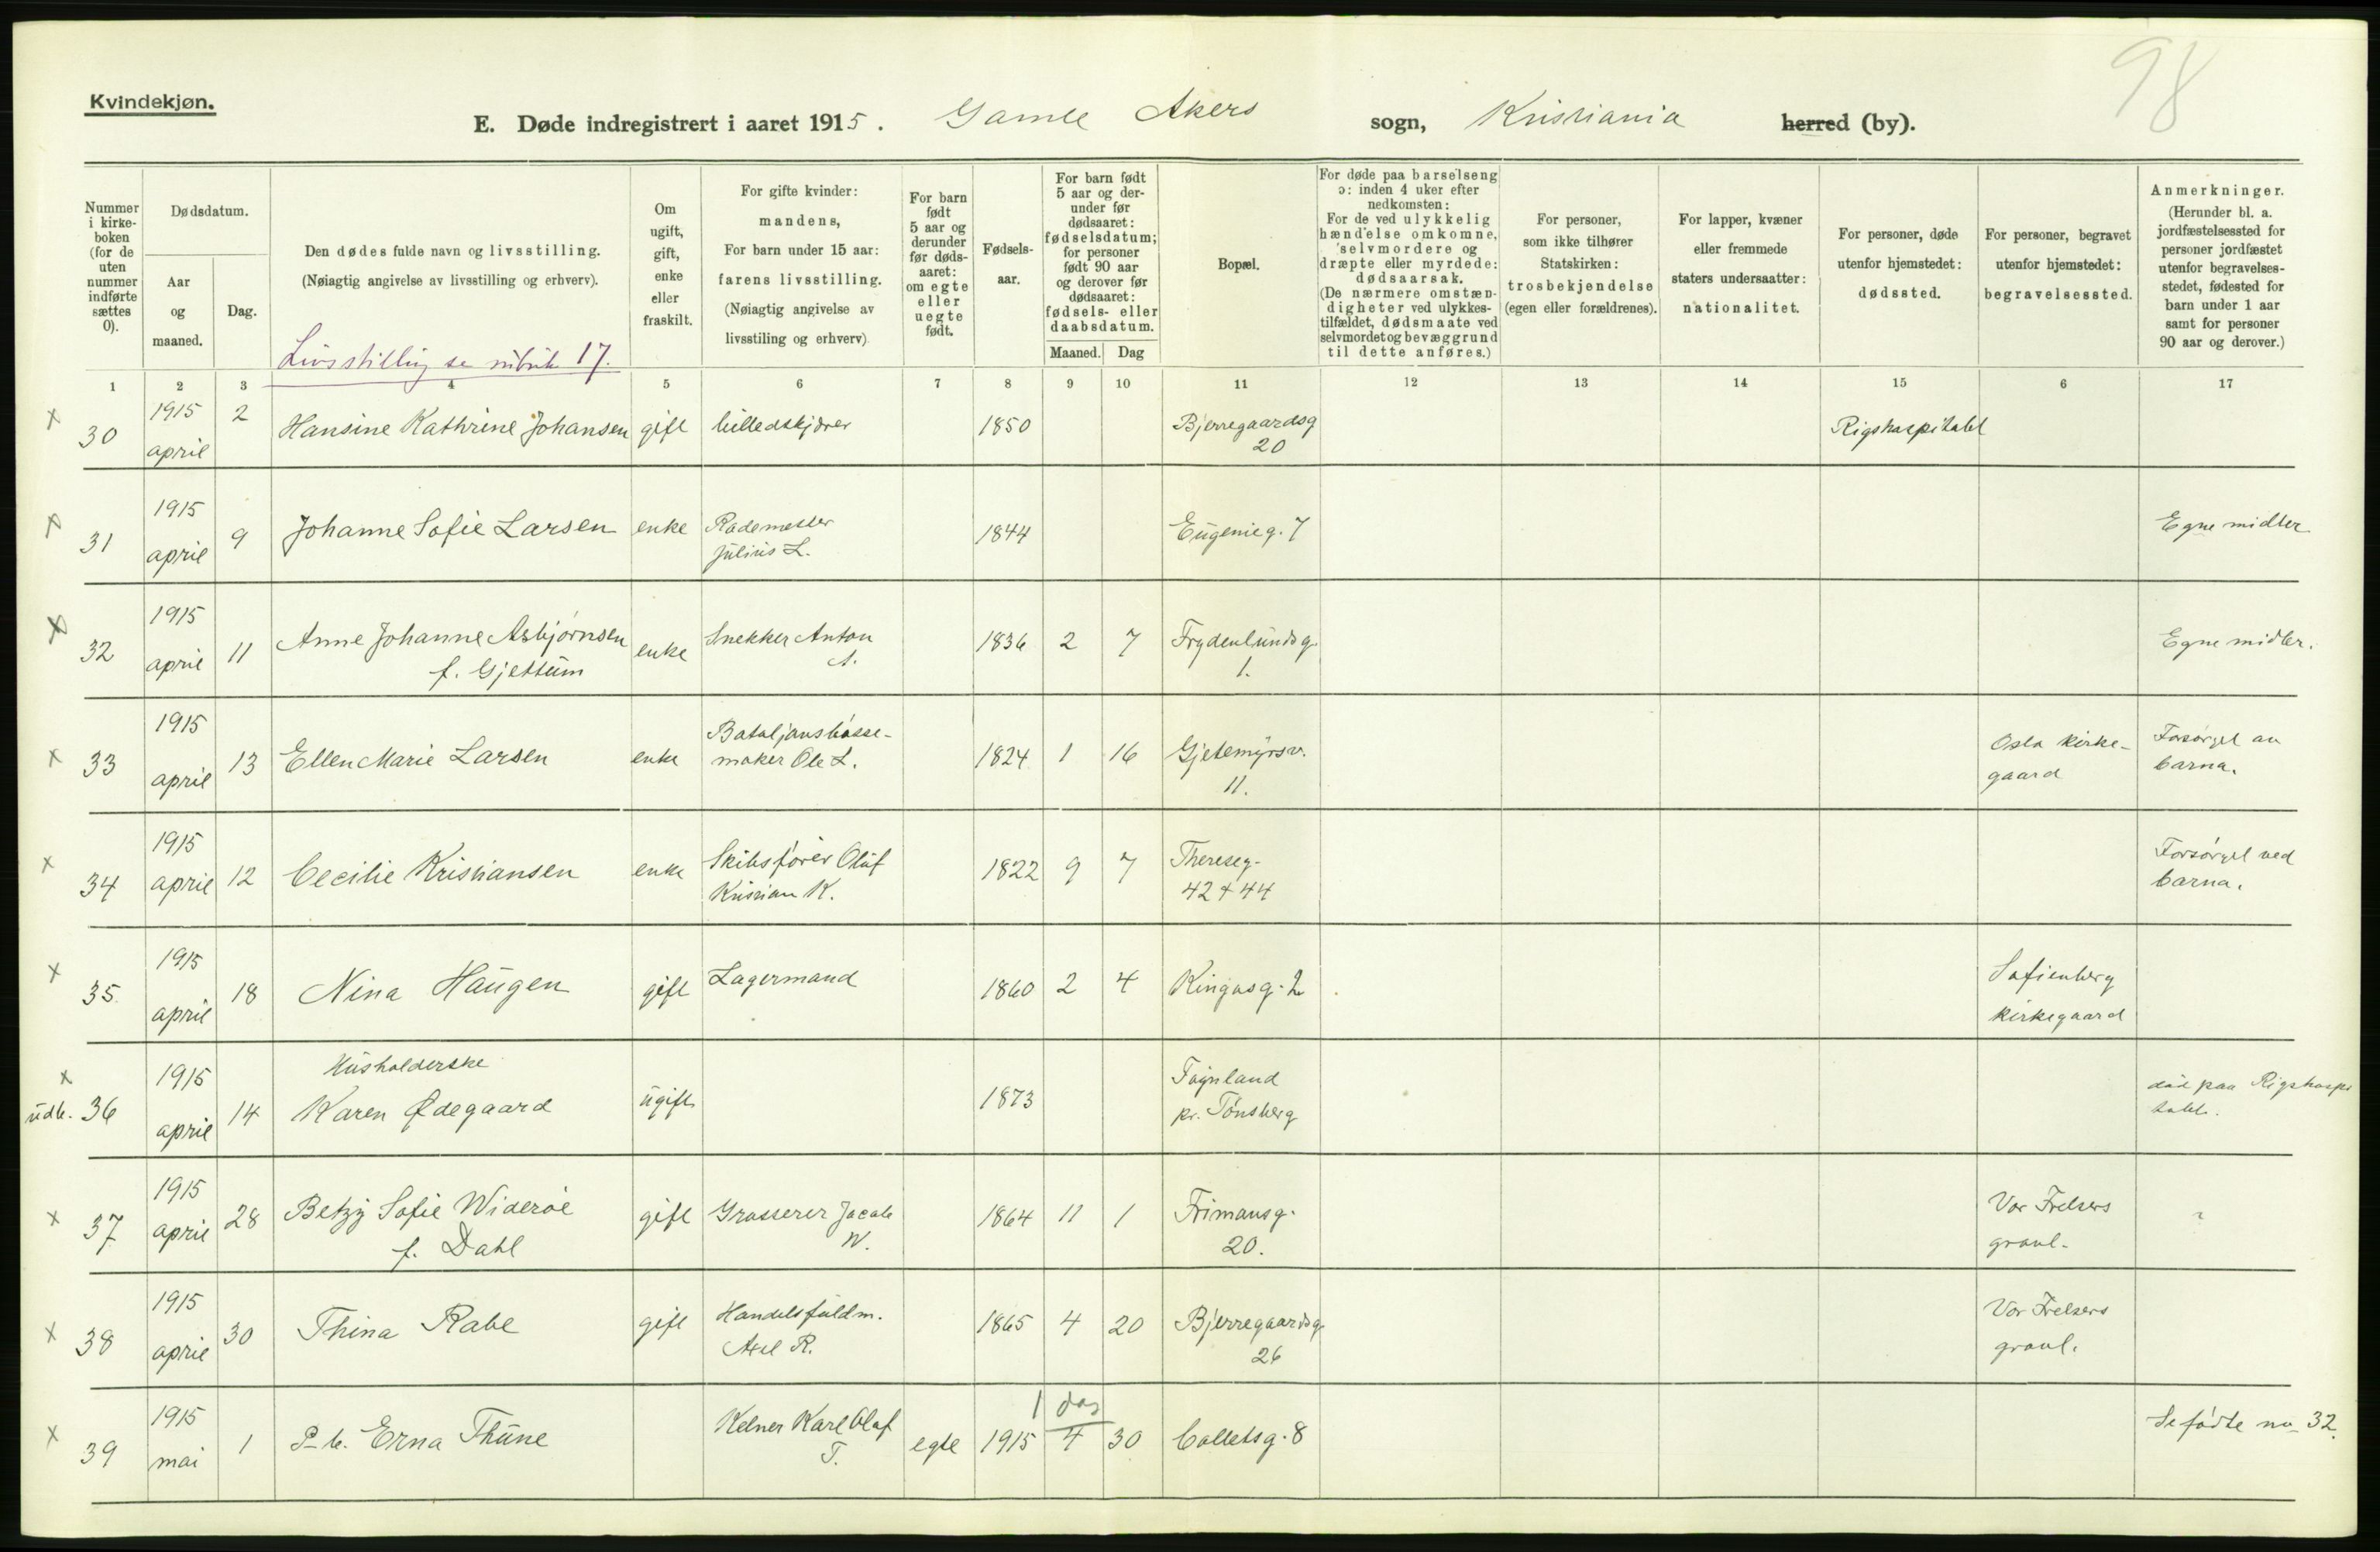 98
Kvindekjøn.
E. Døde indregistrert i aaret 1915. Gamle Akers sogn, Kristiania herred (by).
Nummer i kirke-boken (for de uten nummer indførte sættes 0).
Dødsdatum.
Aar og maaned.
Dag.
Den dødes fulde navn og livsstilling.
(Nøiagtig angivelse av livsstilling og erhverv).
Livsstilling se rubrik 17.
Om ugift, gift, enke eller fraskilt.
For gifte kvinder: mandens,
For barn under 15 aar: farens livsstilling.
(Nøiagtig angivelse av livsstiling og erhverv)
For barn født 5 aar og derunder før døds-aaret: om egte eller uegte født.
Fødsels-aar.
For barn født 5 aar og der-under før dødsaaret: fødselsdatum; for personer født 90 aar og derover før dødsaaret: fødsels- eller daabsdatum.
Maaned. Dag
Bopæl.
For døde paa barselseng ɔ: inden 4 uker efter nedkomsten:
For de ved ulykkelig hændelse omkomne, selvmordere og dræpte eller myrdede: dødsaarsak.
(De nærmere omstæn-digheter ved ulykkes-tilfældet, dødsmaate ved selvmordet og bevæggrund til dette anføres.)
For personer, som ikke tilhører Statskirken: trosbekjendelse (egen eller forældrenes).
For lapper, kvæner eller fremmede staters undersaatter: nationalitet.
For personer, døde utenfor hjemstedet: dødssted.
For personer, begravet utenfor hjemstedet: begravelsessted.
Anmerkninger.
(Herunder bl. a. jordfæstelsessted for personer jordfæstet utenfor begravelses-stedet, fødested for barn under 1 aar samt for personer 90 aar og derover.)
1 2 3 4 5 6 7 8 9 10 11 12 13 14 15 6 17
x 30 1915 april 2 Hansine Kathrine Johansen gift billedskjærer 1850 Bjerregaardsg 20 Rigshospitalet
x 31 1915 april 9 Johanne Sofie Larsen enke Rodemester Julius L. 1844 Eugenieg. 7 Egne midler
x 32 1915 april 11 Anne Johanne Asbjørnsen f. Gjettum enke Snekker Anton A. 1836 2 7 Frydenlundsg. 1. Egne midler.
x 33 1915 april 13 Ellen Marie Larsen enke Bataljonsbøsse-maker Ole L. 1824 1 16 Gjetemyrsv. 11. Oslo kirke-gaard Forsørget av barna.
x 34 1915 april 12 Cecilie Kristiansen enke Skibsfører Oluf Kristian K. 1822 9 7 Thereseg. 42 + 44 Forsørget ved barna.
x 35. 1915 april 18 Nina Haugen gift Lagermand 1860 2 4 Kingosg. 2 Sofienberg kirkegaard
x udb. 36 1915 april 14 Husholderske Karen Ødegaard ugift 1873 Føynland pr. Tønsberg død paa Rigshospitalet.
x 37 1915 april 28 Betzy Sofie Widerøe f. Dahl gift Grosserer Jacob W. 1864 11 1 Frimansg. 20. Vor Frelsers gravl.
x 38 1915 april 30 Thina Rabe gift Handelsfuldm. Axel R. 1865 4 20 Bjerregaardsg. 26 Vor Frelsers gravl.
x 39 1915 mai 1 P-b. Erna Thune Kelner Karl Olaf T. egte 1 dag 1915 4 30 Colletsg. 8 Se fødte no 32.